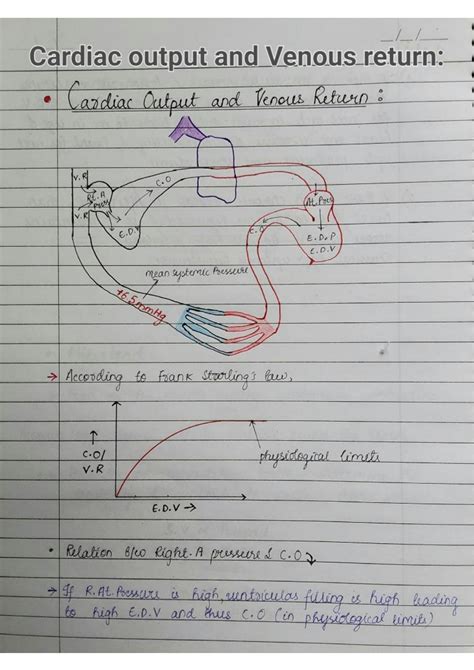 Cardiac output and Venous return:
_/_/_
• Cardiac Output and Venous Return :
V.R
Rt. A
Pres
V.R
E.D.V
C.O
At. Pres
C.O
E.D.P
E.D.V
mean systemic Pressure
+6.5mmHg
→ According to Frank Starling's law,
↑
C.O/
V.R
physiological limits
E.D.V →
• Relation b/w Right.A pressure & C.O
→ If R.At.Pressure is high, ventricular filling is high leading
to high E.D.V and thus C.O (in physiological limits)